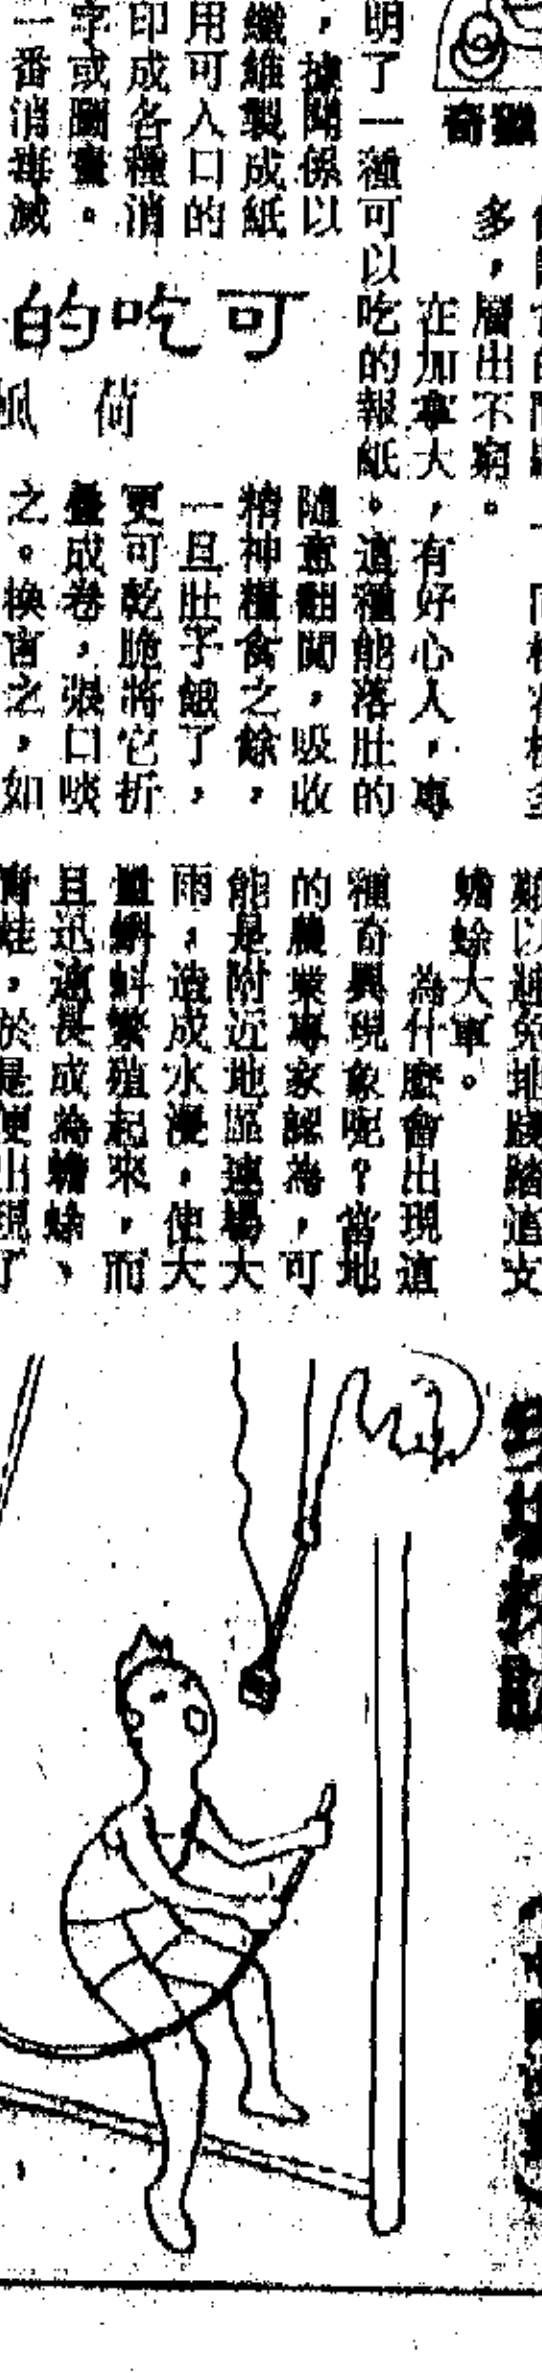 多，層出不窮。
在加拿大，有好心人，專
明了一種可以吃的報紙。這種能落肚的
，據關係以
纖維製成紙
用可入口的
印成各種消
字或圖畫。
一番消毒滅
可吃的
荷
隨意翻閱，吸收
精神糧食之餘，
一旦肚子餓了，
更可乾脆將它折
疊成卷，張口啖
之。換言之，如
難以避免地踐踏這支
蟾蜍大軍。
為什麼會出現這
種奇異現象呢？當地
的農業專家認為，可
能是附近地區連場大
雨，造成水漫，使大
量蝌蚪繁殖起來，而
且迅速長成為蟾蜍、
青蛙，於是便出現了